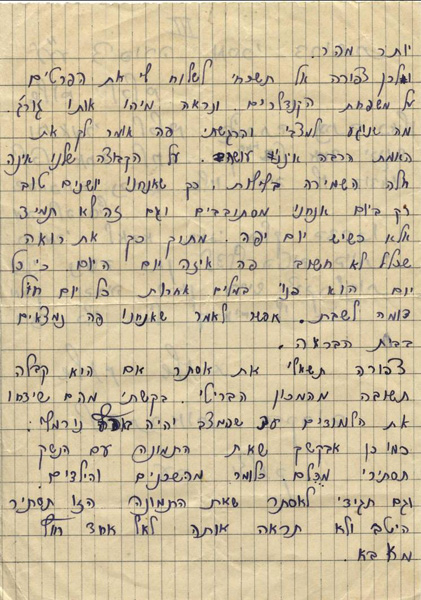 יותר מהר.
ולכן צפורה אל תשכחי לשלוח לי את הפרטים
על משפחת הקנדלרים. ונראה מיהו אותו גורג.
מה שנוגע למצבי והרגשתי פה אומר לך את
האמת הרבה אינני עושה. על הקבוצה שלנו אינה
חלה השמירה בלילות. כך שאנחנו יושנים טוב
רק ביום אנחנו מסתובבים וגם זה לא תמיד
אלא כשיש יום יפה. מתוך כך את רואה
שכלל לא חשוב פה איזה יום היום. כי כל
יום הוא פנוי במלים אחרות כל יום חול
דומה לשבת. אפשר לאמר שאנחנו פה נמצאים
בבית הבראה.
צפורה תשאלי את אסתר אם הוא קבלה
תשובה מהמכון הבריטי. בקשתי מהם שידחו
את הלמודים עד שהמצב יהיה נורמלי.
כמו כן אבקשך שאת התמונה עם הנשק
תסתירי מכלם. כלומר מהשכנים והילדים.
וגם תגידי לאסתר שאת התמונה הזו תשתיר
היטב ולא תראה אותה לאף אחד חוץ
מ בא.